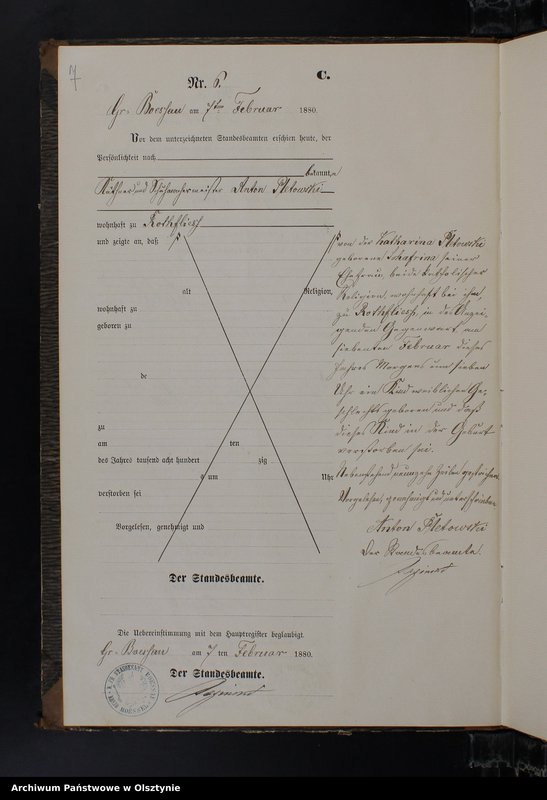 7
Nr. 6.
C.
Gr. Boessau am 7ten Februar 1880.
Vor dem unterzeichneten Standesbeamten erschien heute, der
Persönlichkeit nach
bekannt,
Käthner und Schuhmachermeister Anton
wohnhaft zu Rothfliess
und zeigte an, daß
alt Religion,
wohnhaft zu
geboren zu
de
zu
am ten
des Jahres tausend acht hundert zig
um Uhr
verstorben sei
Vorgelesen, genehmigt und
Der Standesbeamte.
von der Katharina
geborene seiner
Ehefrau, beide katholischer
Religion, wohnhaft bei ihm
zu Rothfliess, in des Anzei-
genden Gegenwart am
siebenten Februar dieses
Jahres Morgens um sieben
Uhr ein Kind weiblichen Ge-
schlechts geboren und daß
dieses Kind in der Geburt
verstorben sei.
Nebenstehend neunzehn Zeilen gestrichen
Vorgelesen, genehmigt und unterschrieben
Anton
Der Standesbeamte.
Die Uebereinstimmung mit dem Hauptregister beglaubigt
Gr. Boessau am 7 ten Februar 1880.
Der Standesbeamte.
Archiwum Państwowe w Olsztynie